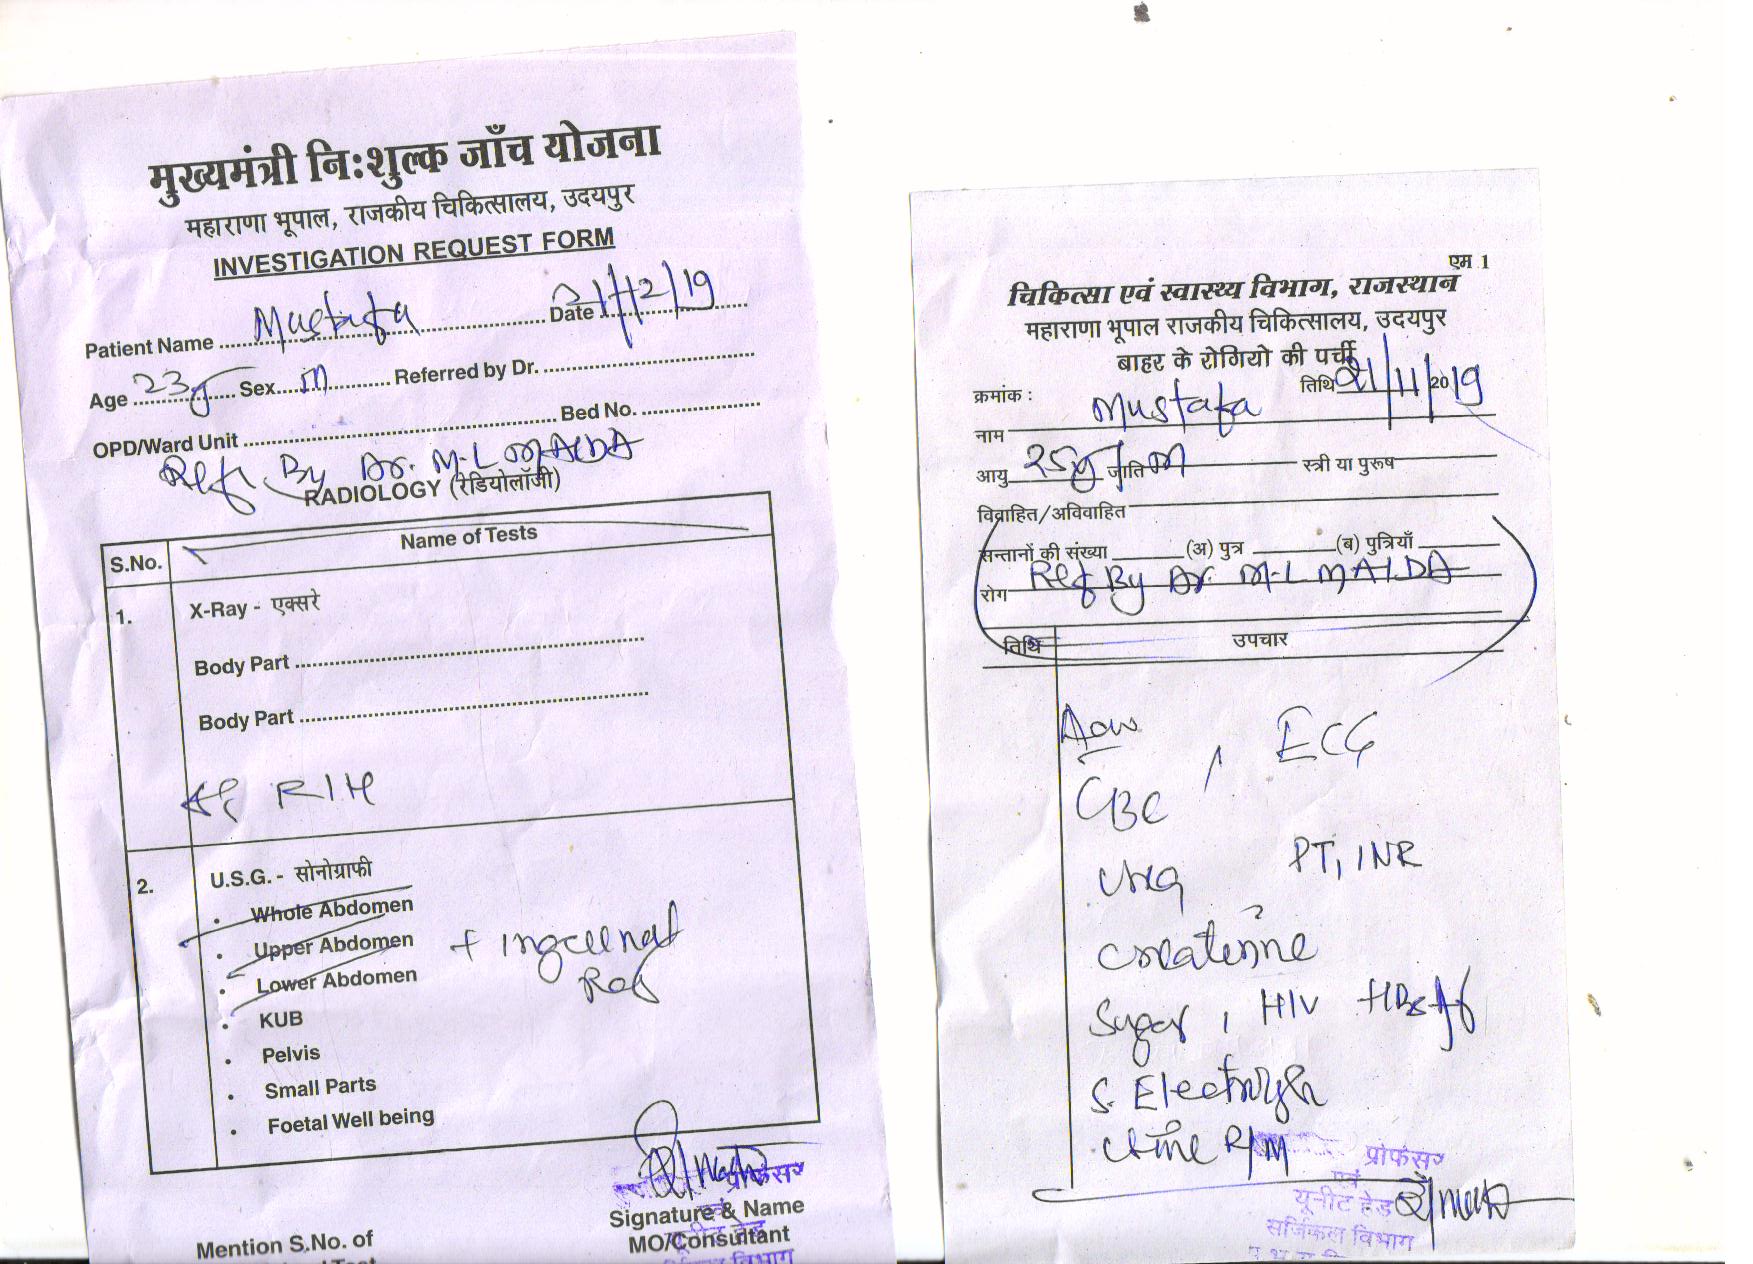 मुख्यमंत्री निःशुल्क जाँच योजना
महाराणा भूपाल, राजकीय चिकित्सालय, उदयपुर
INVESTIGATION REQUEST FORM
Patient Name Mustafa Date 21/12/19
Age 23y Sex M Referred by Dr.
OPD/Ward Unit Bed No.
Ref By Dr. M-L MALDA
RADIOLOGY (रेडियोलॉजी)
S.No. Name of Tests
1. X-Ray - एक्सरे
Body Part
Body Part
RIH
2. U.S.G. - सोनोग्राफी
• Whole Abdomen
• Upper Abdomen + Inguinal
• Lower Abdomen Reg
• KUB
• Pelvis
• Small Parts
• Foetal Well being
प्रोफेसर
एवं
Signature & Name
यूनीट हेड
MO/Consultant
सर्जिकल विभाग
Mention S.No. of
एम 1
चिकित्सा एवं स्वास्थ्य विभाग, राजस्थान
महाराणा भूपाल राजकीय चिकित्सालय, उदयपुर
बाहर के रोगियो की पर्ची
क्रमांक : तिथि 21/11/2019
नाम Mustafa
आयु 25y जाति M स्त्री या पुरूष
विवाहित/अविवाहित
सन्तानों की संख्या (अ) पुत्र (ब) पुत्रियाँ
रोग Ref By Dr. M-L MALDA
तिथि उपचार
Adv
CBC, ECG
Urea PT, INR
Creatinine
Sugar, HIV HBsAg
S. Electrolyte
Urine R/M
प्रोफेसर
एवं
यूनीट हेड
सर्जिकल विभाग